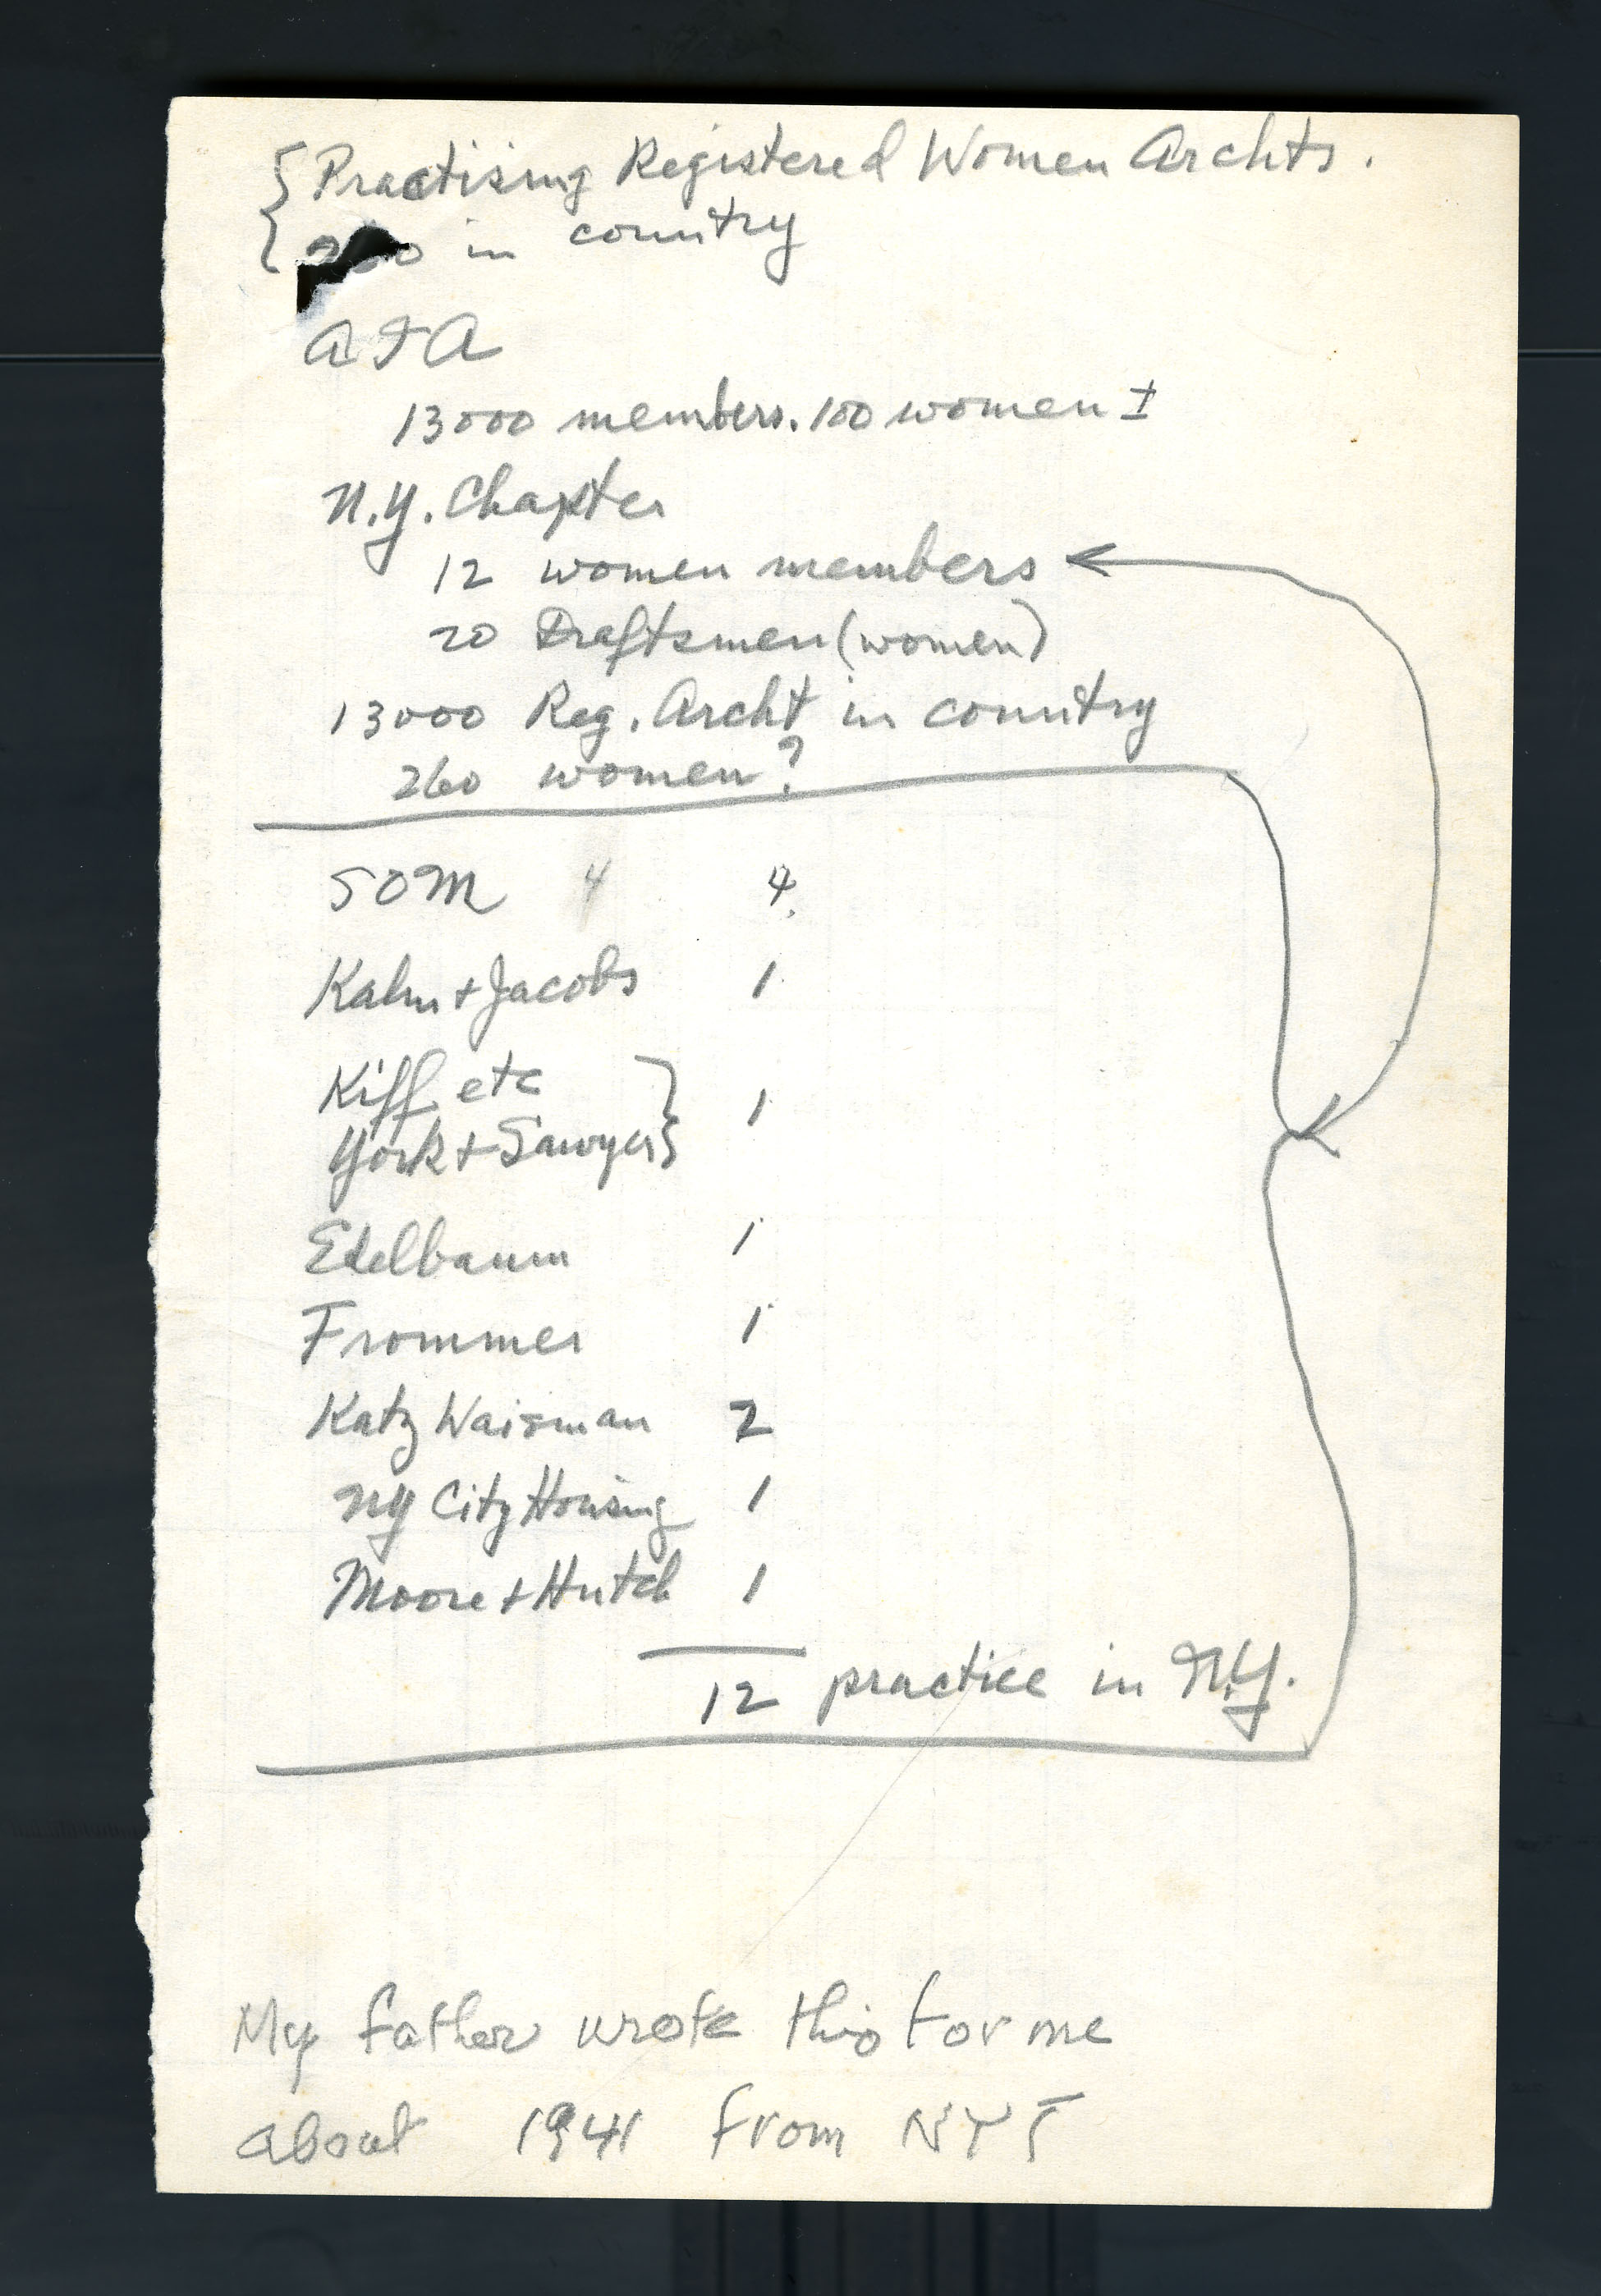 Practising Registered Women Archts.
in country
AIA
13000 members. 100 women ±
N.Y. Chapter
12 women members
20 Draftsmen (women)
13000 Reg. Archt in country
260 women?
SOM 4 4
Kahn + Jacobs 1
Kiff etc
York + Sawyer 1
Edelbaum 1
Frommer 1
Katz Waisman 2
NY City Housing 1
Moore + Hutch 1
12 practice in N.Y.
My father wrote this for me
about 1941 from NYT